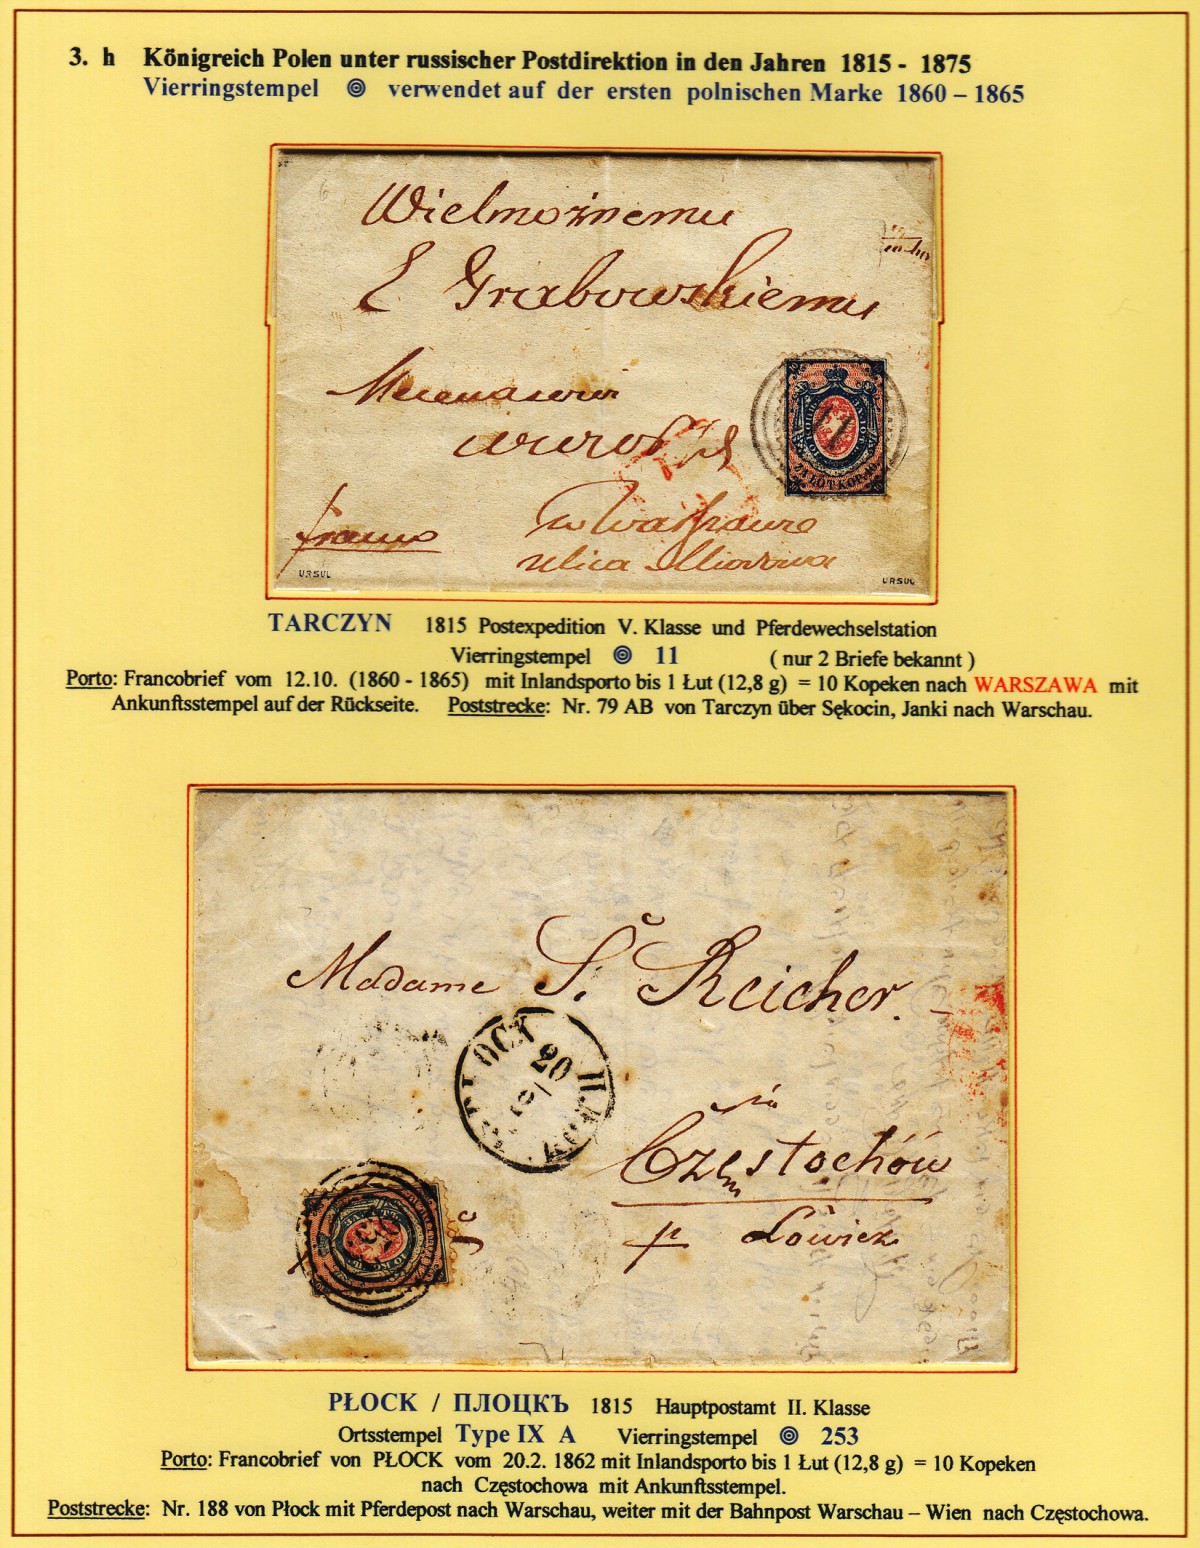 3. h Königreich Polen unter russischer Postdirektion in den Jahren 1815 - 1875
Vierringstempel verwendet auf der ersten polnischen Marke 1860 – 1865
Wielmożnemu
E Grabowskiemu
franco
w Warszawie
ulica Miodowa
11
ZA ŁOT KOP. 10
URSUL
URSUL
TARCZYN 1815 Postexpedition V. Klasse und Pferdewechselstation
Vierringstempel 11 ( nur 2 Briefe bekannt )
Porto: Francobrief vom 12.10. (1860 - 1865) mit Inlandsporto bis 1 Łut (12,8 g) = 10 Kopeken nach WARSZAWA mit
Ankunftsstempel auf der Rückseite. Poststrecke: Nr. 79 AB von Tarczyn über Sękocin, Janki nach Warschau.
Madame S. Reicher.
PŁOCK
20
Częstochów
p Łowicz
253
PŁOCK / ПЛОЦКЪ 1815 Hauptpostamt II. Klasse
Ortsstempel Type IX A Vierringstempel 253
Porto: Francobrief von PŁOCK vom 20.2. 1862 mit Inlandsporto bis 1 Łut (12,8 g) = 10 Kopeken
nach Częstochowa mit Ankunftsstempel.
Poststrecke: Nr. 188 von Płock mit Pferdepost nach Warschau, weiter mit der Bahnpost Warschau – Wien nach Częstochowa.